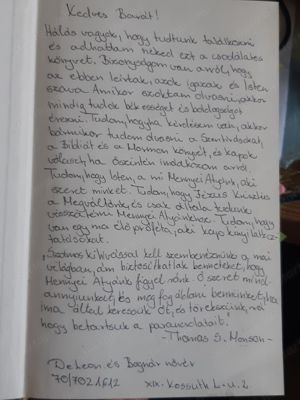 Kedves Barát!
Hálás vagyok, hogy tudtunk találkozni
és adhattam neked ezt a csodálatos
könyvet. Bizonyságom van arról, hogy
az ebben leírtak, azok igazak és Isten
szava. Amikor szoktam olvasni, akkor
mindig tudok békességet és boldogságot
érezni. Tudom, hogyha kérdésem van, akkor
bármikor tudom olvasni a Szentírásokat,
a Bibliát és a Mormon könyvét, és kapok
választ, ha őszintén imádkozom arról.
Tudom, hogy Isten, a mi Mennyei Atyánk, aki
szeret minket. Tudom, hogy Jézus Krisztus
a Megváltónk, és csak általa tudunk
visszatérni Mennyei Atyánkhoz. Tudom, hogy
van egy ma élő próféta, aki kap kinyilatkoz-
tatásokat.
„Számos kihívással kell szembenéznünk a mai
világban, ám biztosíthatlak benneteket, hogy
Mennyei Atyánk figyel ránk. Ő szeret mind-
annyiunkat, és meg fog áldani bennünket, ha
ima által keressük Őt, és törekszünk rá,
hogy betartsuk a parancsolatait.
- Thomas S. Monson -
DeLeon és Bognár nővér
70/702 1612 XIX. Kossuth L. u. 2